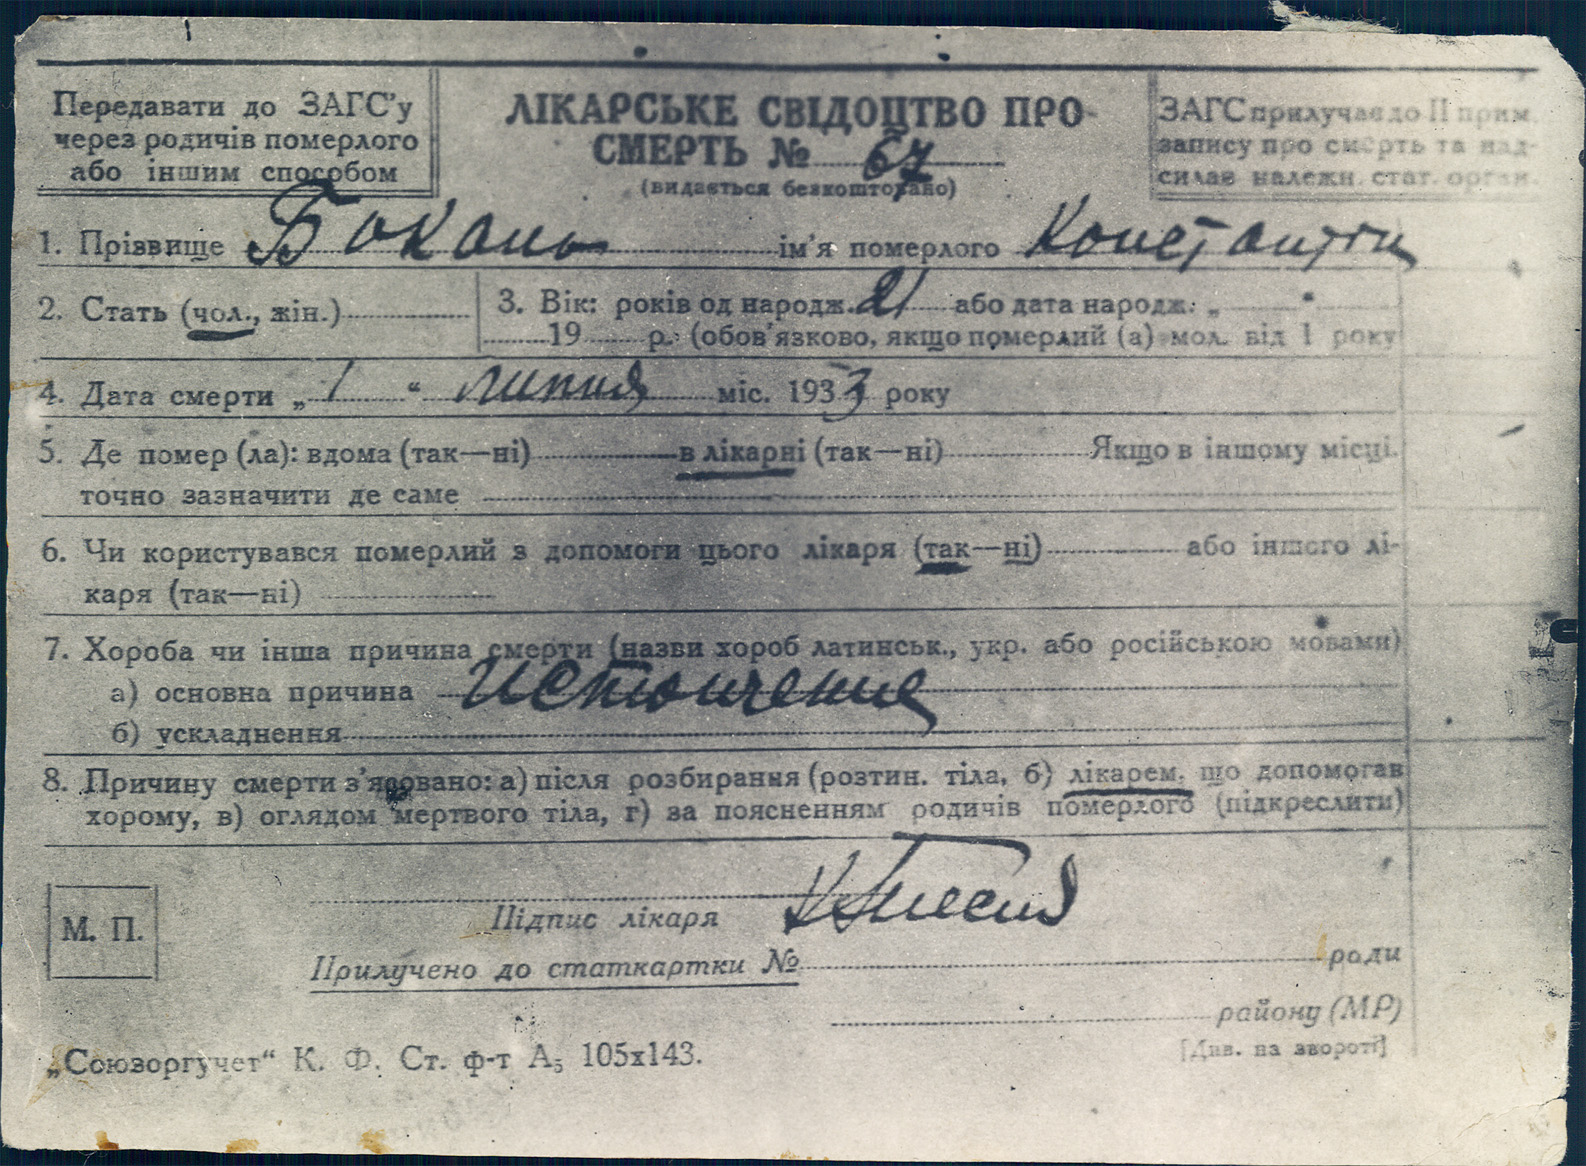 Передавати до ЗАГС'у
через родичів померлого
або іншим способом
ЛІКАРСЬКЕ СВІДОЦТВО ПРО
СМЕРТЬ № 67
(видається безкоштовано)
ЗАГС прилучає до II прим.
запису про смерть та над-
силає належн. стат. орган.
1. Прізвище Бокань ім'я померлого Константин
2. Стать (чол., жін.)
3. Вік: років од народж. 21 або дата народж. „ “
19 р. (обов'язково, якщо померлий (а) мол. від 1 року
4. Дата смерти „ 1 “ липня міс. 1933 року
5. Де помер (ла): вдома (так—ні) в лікарні (так—ні) Якщо в іншому місці.
точно зазначити де саме
6. Чи користувався померлий з допомоги цього лікаря (так—ні) або іншого лі-
каря (так—ні)
7. Хороба чи інша причина смерти (назви хороб латинськ., укр. або російською мовами)
а) основна причина Истощение
б) ускладнення
8. Причину смерти з'ясовано: а) після розбирання (розтин. тіла, б) лікарем, що допомогав
хорому, в) оглядом мертвого тіла, г) за поясненням родичів померлого (підкреслити)
М. П.
Підпис лікаря
Прилучено до статкартки № ради
району (МР)
„Союзоргучет“ К. Ф. Ст. ф-т А₅ 105х143.
[Див. на звороті]